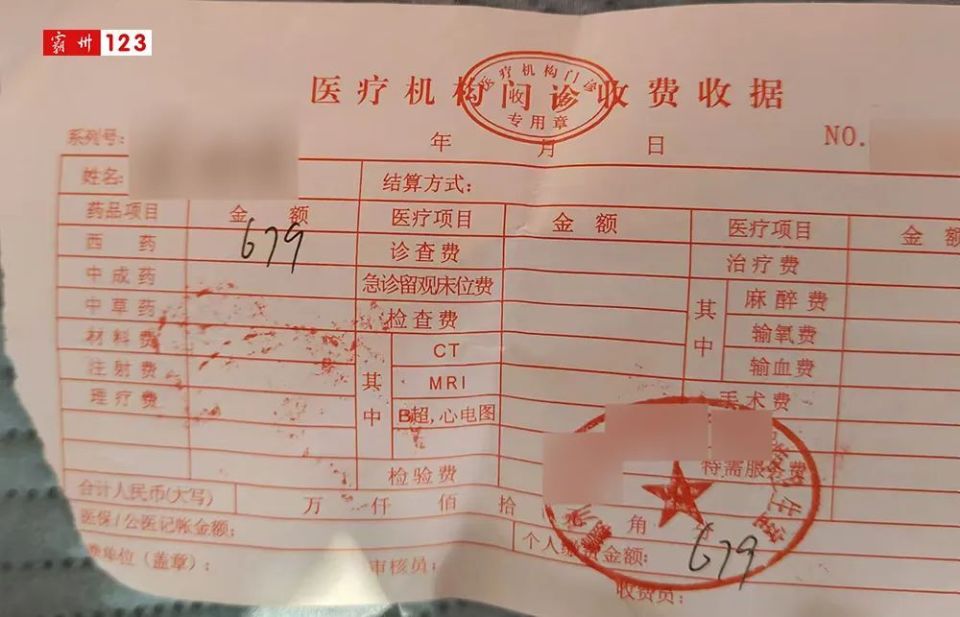 霸州123
医疗机构门诊收费收据
医疗机构门诊
收费
专用章
系列号: 年 月 日 NO.
姓名: 结算方式:
药品项目 金额 医疗项目 金额 医疗项目 金额
西药 679 诊查费 治疗费
中成药 急诊留观床位费 其中 麻醉费
中草药 检查费 输氧费
材料费 其中 CT 输血费
注射费 MRI 手术费
理疗费 B超,心电图
特需服务费
检验费
合计人民币(大写) 万 仟 佰 拾 元 角 分
医保/公医记帐金额: 个人缴费金额: 679
费单位(盖章): 审核员: 收费员: